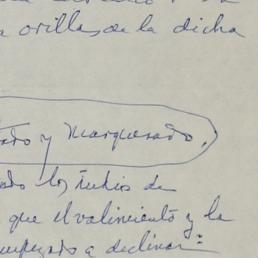 a orillas de la dicha
y Marquesado.
los indios de
que el valimiento y la
empezado a declinar =